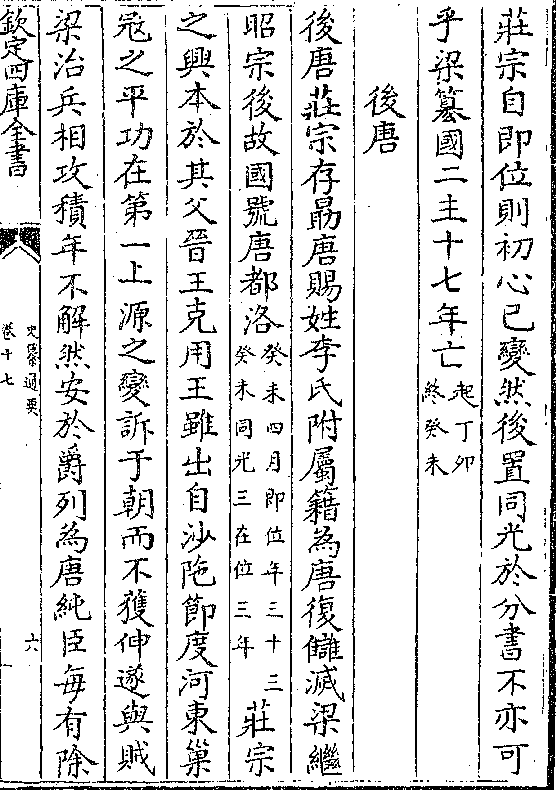 莊宗自即位則初心已變然後置同光於分書不亦可
乎梁簒國二主十七年亡起丁卯終癸未
後唐
後唐莊宗存勗唐賜姓李氏附屬籍為唐復讎滅梁繼
昭宗後故國號唐都洛癸未四月即位年三十三癸未同光三在位三年莊宗
之興本於其父晉王克用王雖出自沙陁節度河東巢
冦之平功在第一上源之變訴于朝而不獲伸遂與賊
梁治兵相攻積年不解然安於爵列為唐純臣每有除
欽定四庫全書
史纂通要
卷十七
六